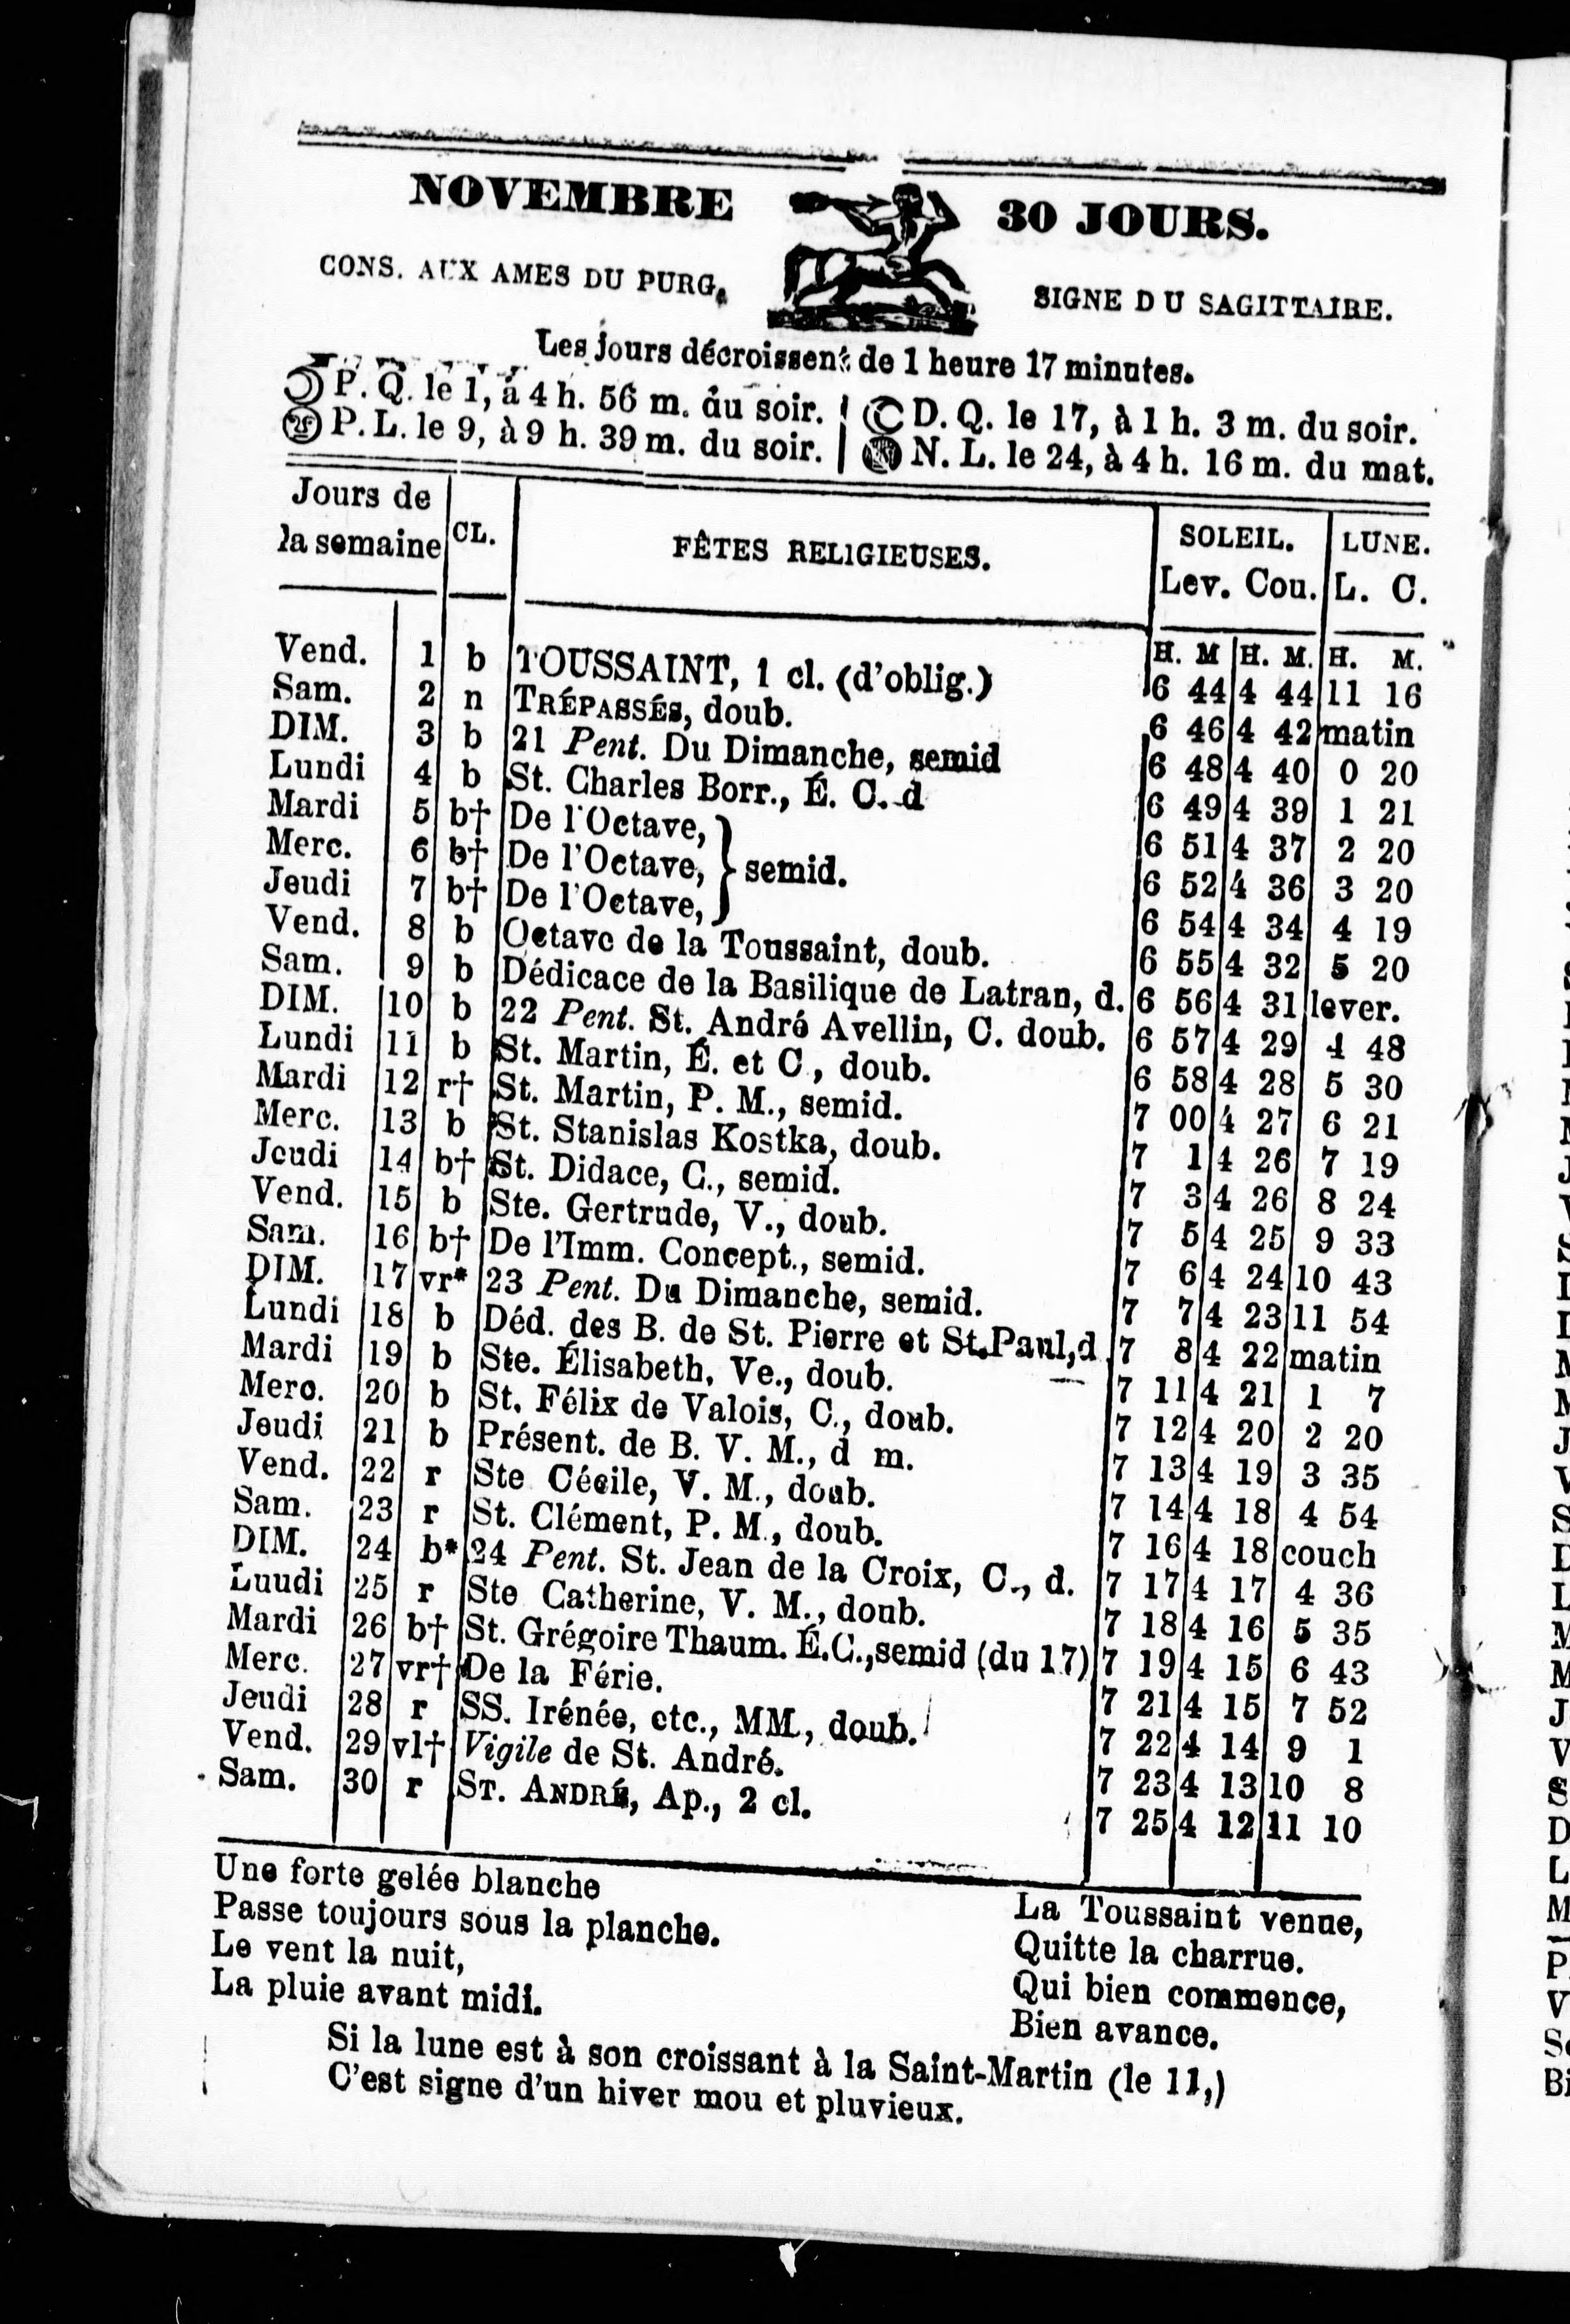 NOVEMBRE 30 JOURS.
CONS. AUX AMES DU PURG. SIGNE DU SAGITTAIRE.
Les jours décroissent de 1 heure 17 minutes.
P. Q. le 1, à 4 h. 56 m. du soir. D. Q. le 17, à 1 h. 3 m. du soir.
P. L. le 9, à 9 h. 39 m. du soir. N. L. le 24, à 4 h. 16 m. du mat.
Jours de la semaine CL. FÊTES RELIGIEUSES. SOLEIL. LUNE.
Lev. Cou. L. C.
H. M H. M. H. M.
Vend. 1 b TOUSSAINT, 1 cl. (d'oblig.) 6 44 4 44 11 16
Sam. 2 n TRÉPASSÉS, doub. 6 46 4 42 matin
DIM. 3 b 21 Pent. Du Dimanche, semid 6 48 4 40 0 20
Lundi 4 b St. Charles Borr., É. C. d 6 49 4 39 1 21
Mardi 5 b† De l'Octave, 6 51 4 37 2 20
Merc. 6 b† De l'Octave, } semid. 6 52 4 36 3 20
Jeudi 7 b† De l'Octave, 6 54 4 34 4 19
Vend. 8 b Octave de la Toussaint, doub. 6 55 4 32 5 20
Sam. 9 b Dédicace de la Basilique de Latran, d. 6 56 4 31 lever.
DIM. 10 b 22 Pent. St. André Avellin, C. doub. 6 57 4 29 4 48
Lundi 11 b St. Martin, É. et C., doub. 6 58 4 28 5 30
Mardi 12 r† St. Martin, P. M., semid. 7 00 4 27 6 21
Merc. 13 b St. Stanislas Kostka, doub. 7 1 4 26 7 19
Jeudi 14 b† St. Didace, C., semid. 7 3 4 26 8 24
Vend. 15 b Ste. Gertrude, V., doub. 7 5 4 25 9 33
Sam. 16 b† De l'Imm. Concept., semid. 7 6 4 24 10 43
DIM. 17 vr* 23 Pent. Du Dimanche, semid. 7 7 4 23 11 54
Lundi 18 b Déd. des B. de St. Pierre et St. Paul, d. 7 8 4 22 matin
Mardi 19 b Ste. Élisabeth, Ve., doub. 7 11 4 21 1 7
Merc. 20 b St. Félix de Valois, C., doub. 7 12 4 20 2 20
Jeudi 21 b Présent. de B. V. M., d m. 7 13 4 19 3 35
Vend. 22 r Ste Cécile, V. M., doub. 7 14 4 18 4 54
Sam. 23 r St. Clément, P. M., doub. 7 16 4 18 couch
DIM. 24 b* 24 Pent. St. Jean de la Croix, C., d. 7 17 4 17 4 36
Luudi 25 r Ste Catherine, V. M., doub. 7 18 4 16 5 35
Mardi 26 b† St. Grégoire Thaum. É.C., semid (du 17) 7 19 4 15 6 43
Merc. 27 vr† De la Férie. 7 21 4 15 7 52
Jeudi 28 r SS. Irénée, etc., MM., doub. 7 22 4 14 9 1
Vend. 29 vl† Vigile de St. André. 7 23 4 13 10 8
Sam. 30 r ST. ANDRÉ, Ap., 2 cl. 7 25 4 12 11 10
Une forte gelée blanche
Passe toujours sous la planche.
Le vent la nuit,
La pluie avant midi.
La Toussaint venue,
Quitte la charrue.
Qui bien commence,
Bien avance.
Si la lune est à son croissant à la Saint-Martin (le 11,)
C'est signe d'un hiver mou et pluvieux.